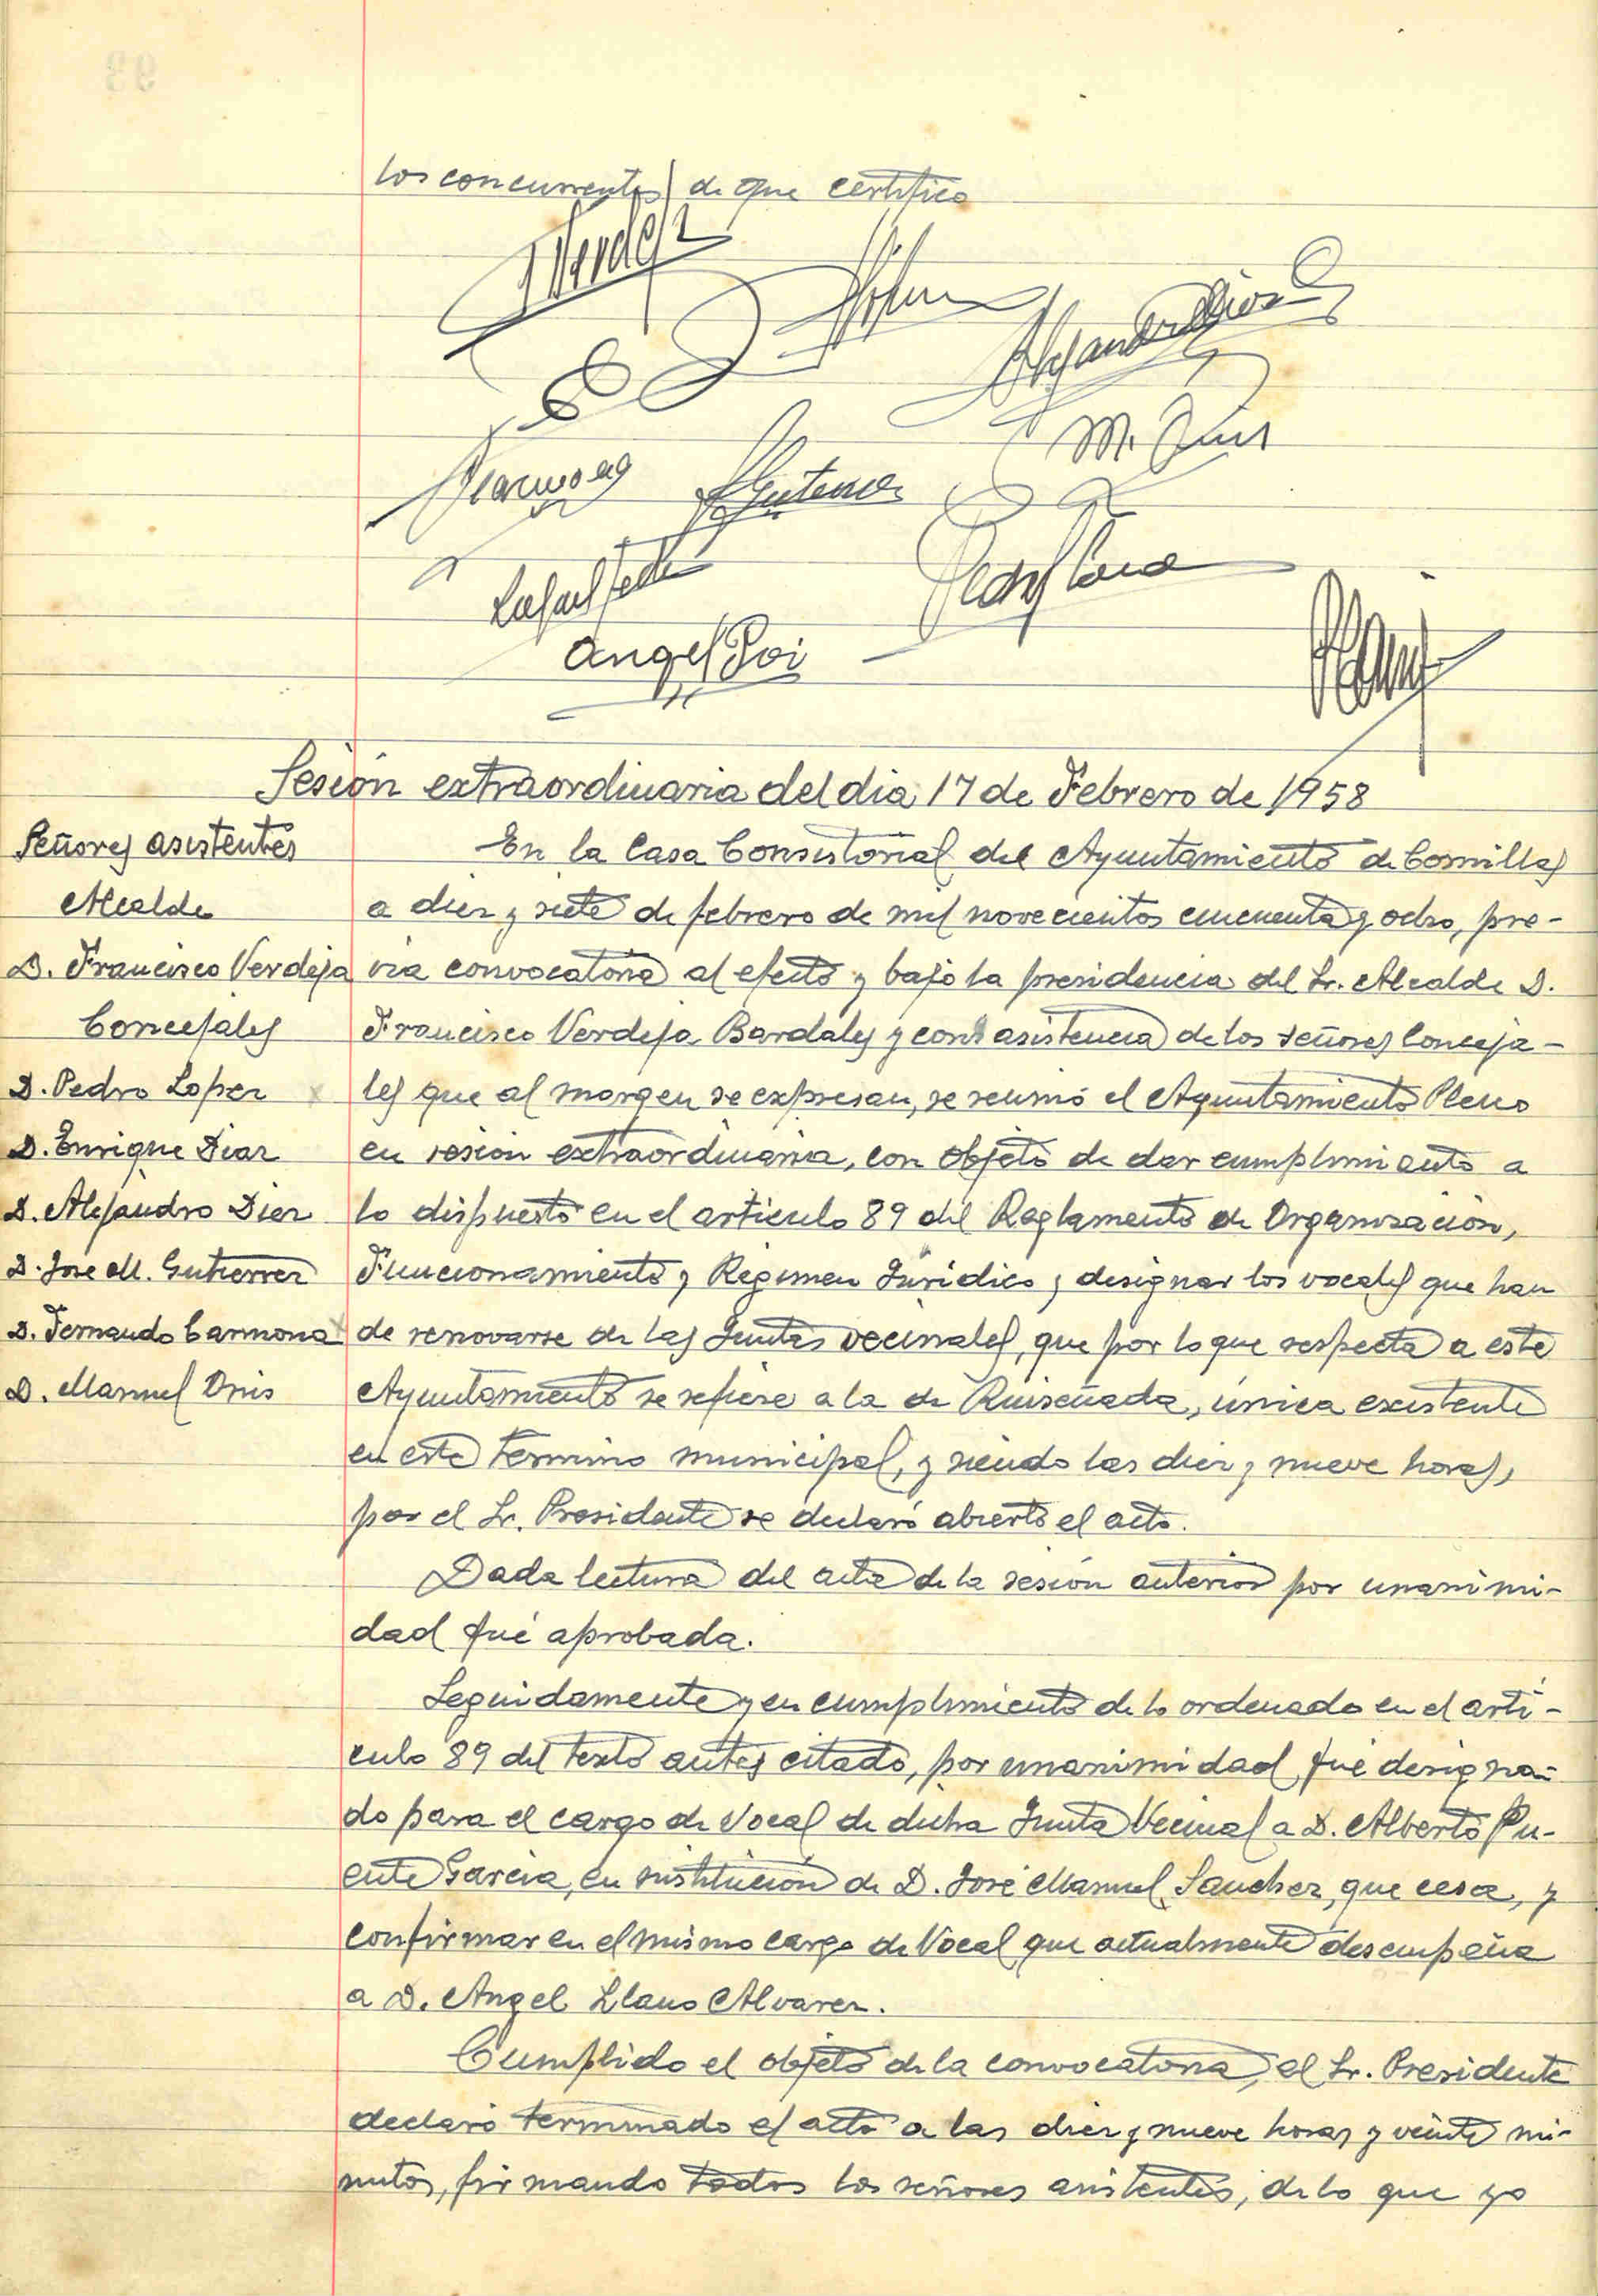 los concurrentes, de que certifico
Alejandro Diez
M. Onis
Carmona
Gutierrez
Rafael
Angel
Sesión extraordinaria del dia 17 de Febrero de 1958
Señores asistentes
Alcalde
D. Francisco Verdeja
Concejales
D. Pedro Lopez
D. Enrique Diaz
D. Alejandro Diez
D. Jose M. Gutierrez
D. Fernando Carmona
D. Manuel Onis
En la Casa Consistorial del Ayuntamiento de Comillas
a diez y siete de febrero de mil novecientos cincuenta y ocho, pre-
via convocatoria al efecto y bajo la presidencia del Sr. Alcalde D.
Francisco Verdeja Bardales y con asistencia de los señores Conceja-
les que al margen se expresan, se reunió el Ayuntamiento Pleno
en sesion extraordinaria, con objeto de dar cumplimiento a
lo dispuesto en el articulo 89 del Reglamento de Organización,
Funcionamiento y Regimen Juridico y designar los vocales que han
de renovarse de las Juntas vecinales, que por lo que respecta a este
Ayuntamiento se refiere a la de Ruiseñada, única existente
en este termino municipal, y siendo las diez y nueve horas,
por el Sr. Presidente se declaró abierto el acto.
Dada lectura del acta de la sesión anterior por unanimi-
dad fué aprobada.
Seguidamente y en cumplimiento de lo ordenado en el arti-
culo 89 del texto antes citado, por unanimidad fué designa-
do para el cargo de Vocal de dicha Junta Vecinal a D. Alberto Pu-
ente Garcia, en sustitución de D. José Manuel Sanchez, que cesa, y
confirmar en el mismo cargo de Vocal que actualmente desempeña
a D. Angel Llano Alvarez.
Cumplido el objeto de la convocatoria, el Sr. Presidente
declaró terminado el acto a las diez y nueve horas y veinte mi-
nutos, firmando todos los señores asistentes, de lo que yo